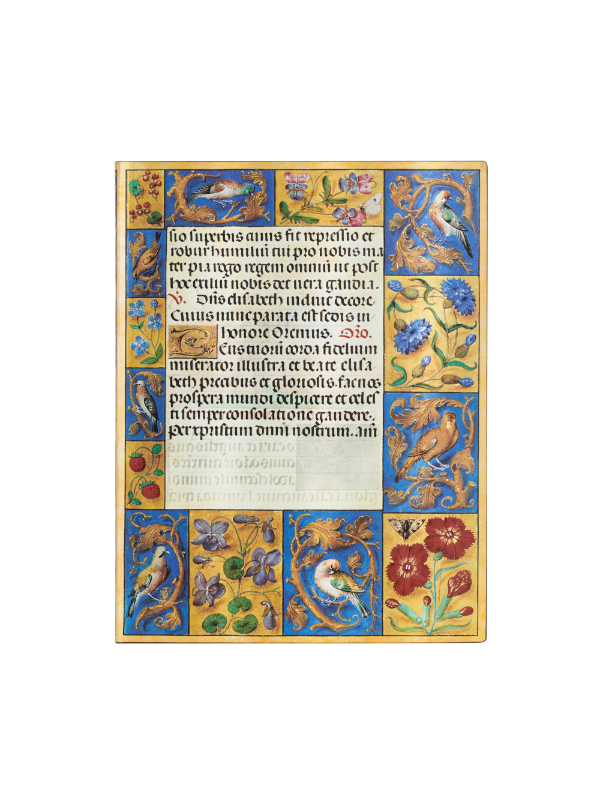 sio superbis cuius fit repressio et
robur humiliū cui pro nobis ma
ter pia rogo regem omniū ut post
hoc exiliū nobis det vera gaudia.
V. Dn̄s elisabeth induit decore
Cuius nunc parata est sedis in
honore Oremus. Oro.
Eus tuorū corda fidelium
miserator illustra et beate elisa
beth precibus et gloriosis. fac nos
prospera mundi despicere et celes
ti semper consolatione gaudere.
Per xpistum dn̄m nostrum. am̄